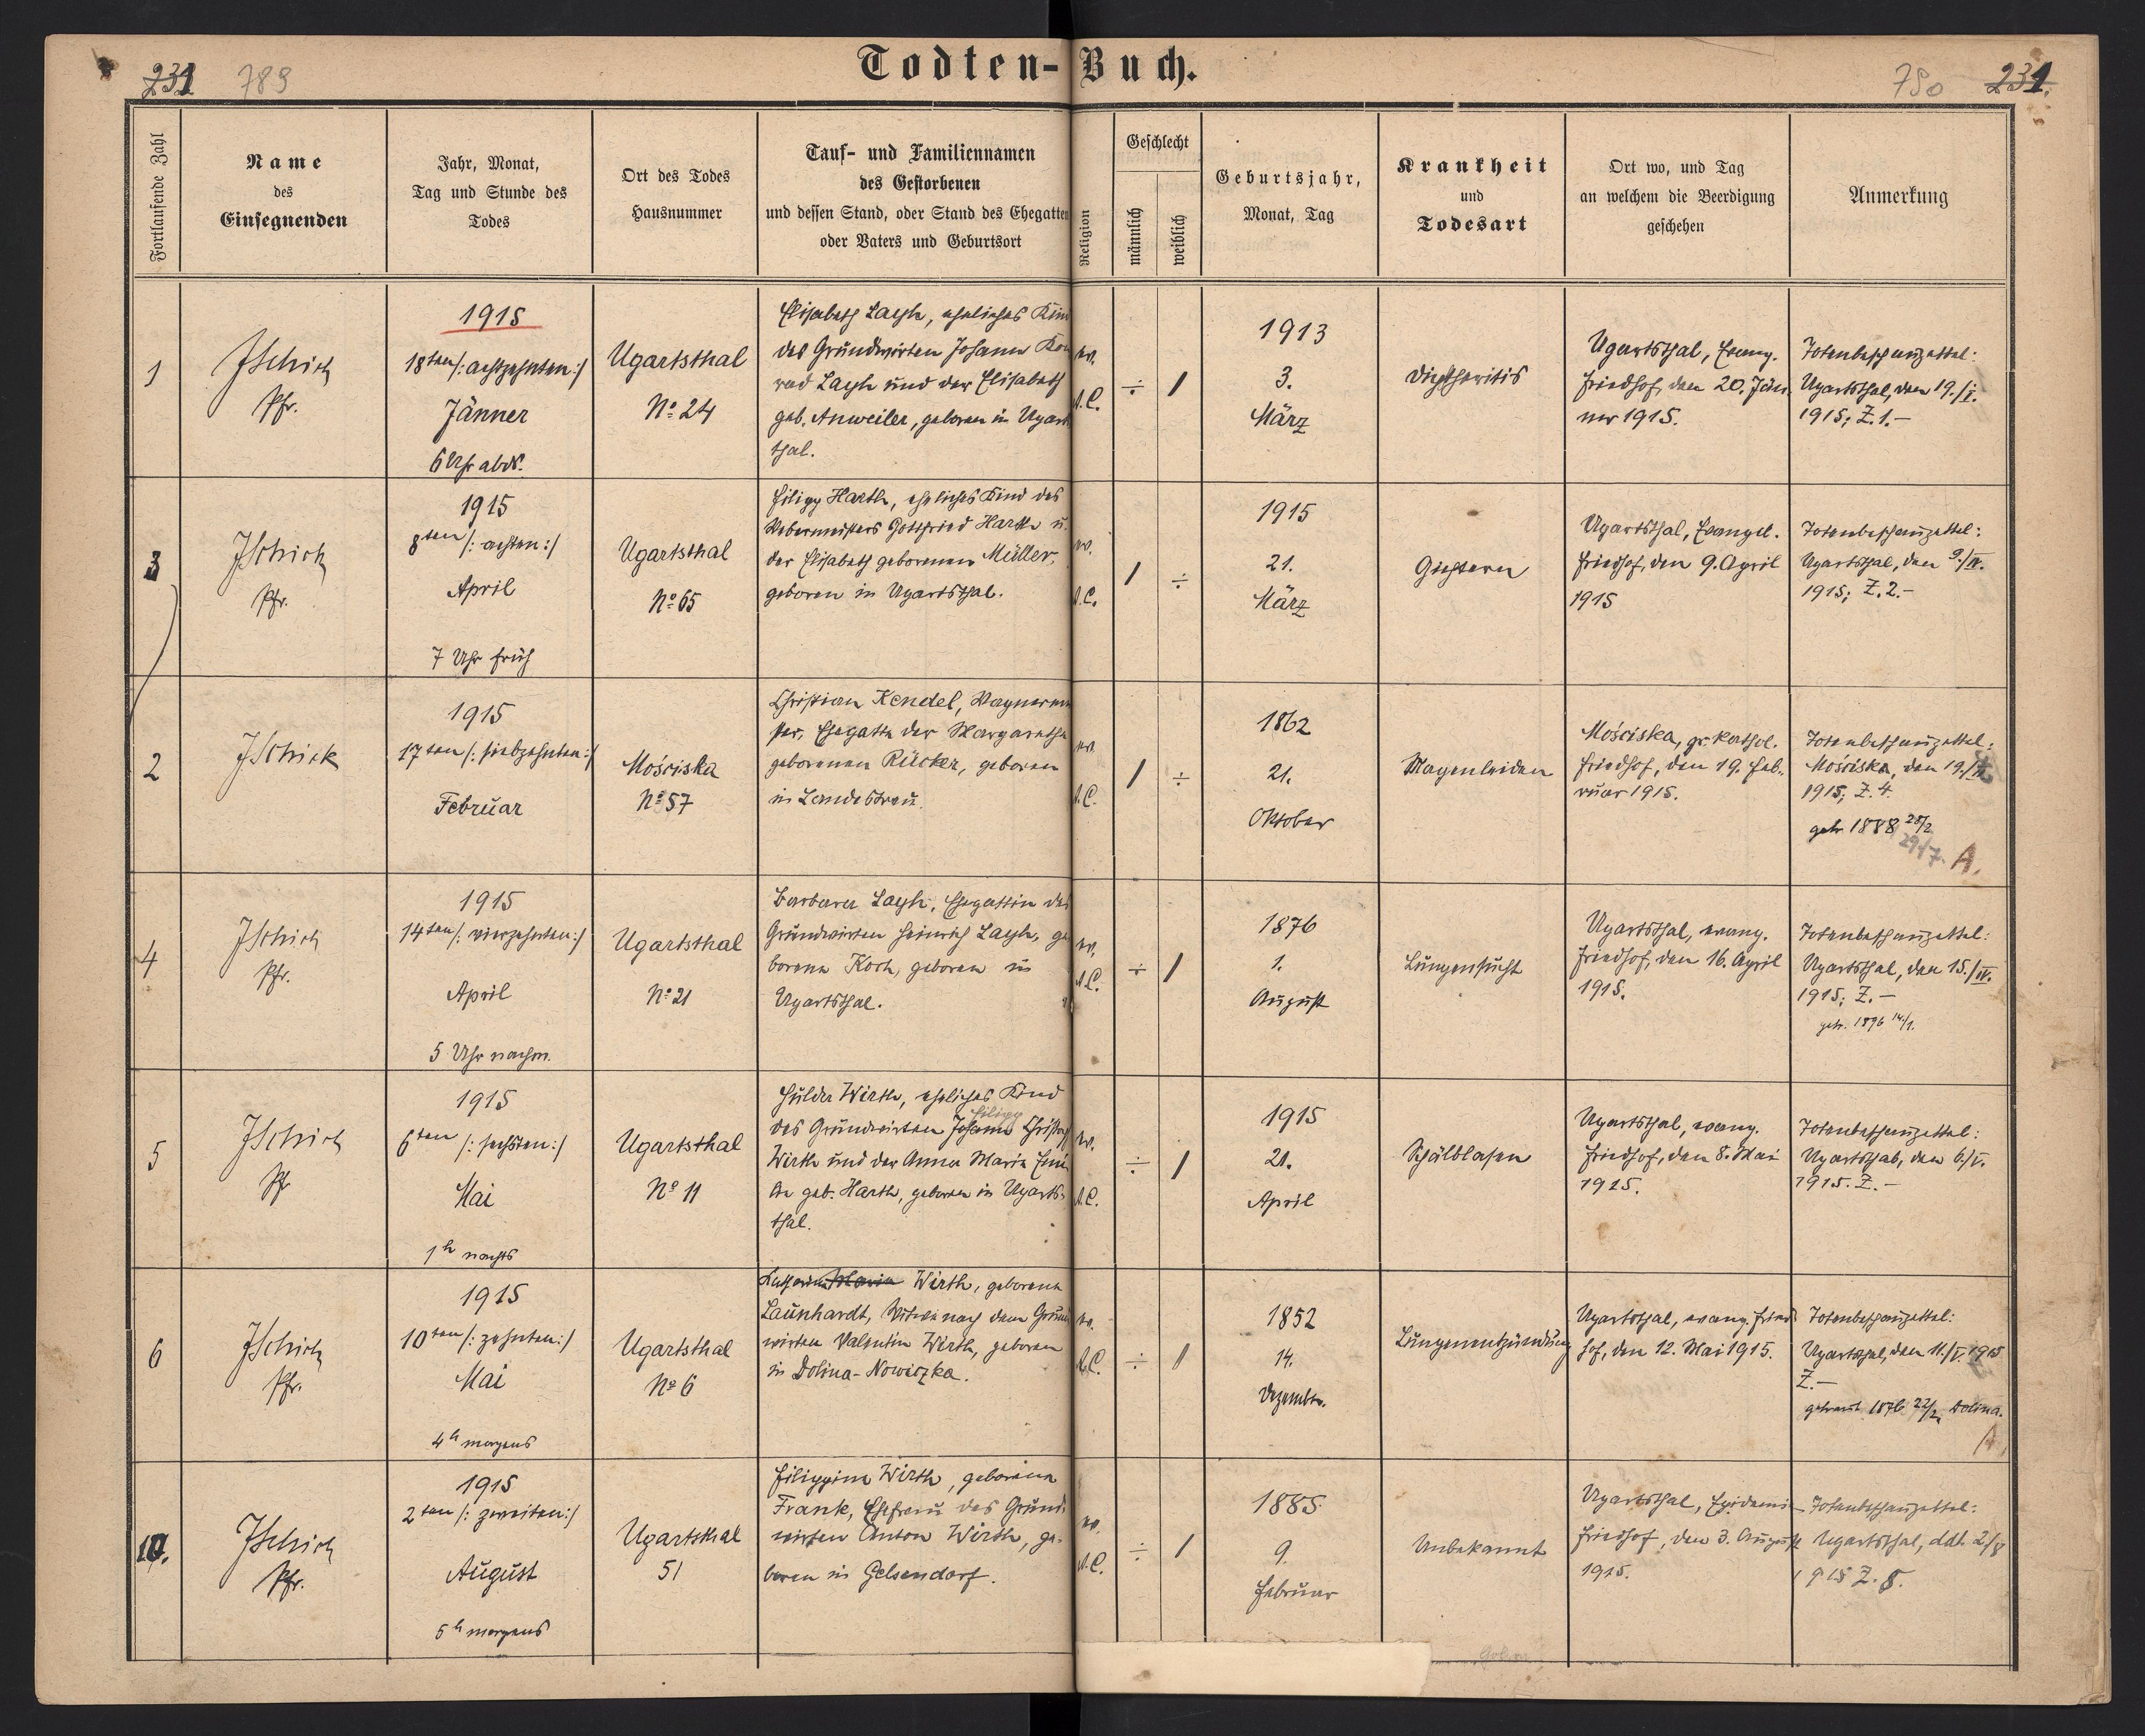 Todten-Buch.
231 789
790 231.
Fortlaufende Zahl
Name
des
Einsegnenden
Jahr, Monat,
Tag und Stunde des
Todes
Ort des Todes
Hausnummer
Tauf- und Familiennamen
des Gestorbenen
und dessen Stand, oder Stand des Ehegatten
oder Vaters und Geburtsort
Religion
Geschlecht
männlich
weiblich
Geburtsjahr,
Monat, Tag
Krankheit
und
Todesart
Ort wo, und Tag
an welchem die Beerdigung
geschehen
Anmerkung
1
JSchick
Pfr.
1915
18ten /: achtzehnten :/
Jänner
6 Uhr abds.
Ugartsthal
No 24
Elisabeth Layh, eheliches Kin
des Grundwirten Johann Kon
rad Layh und der Elisabeth
geb. Anweiler, geboren in Ugart
thal.
ev.
A.C.
÷ 1
1913
3.
März
Diphtheritis
Ugartsthal, Evang.
Friedhof, den 20. Jän
ner 1915.
Totenbeschauzettel:
Ugartsthal, den 19./I.
1915; Z.1.-
3
JSchick
Pfr.
1915
8ten /: achten :/
April
7 Uhr früh
Ugartsthal
No 65
Filipp Harth, eheliches Kind des
Webermeisters Gottfried Harth u.
der Elisabeth geborenen Müller,
geboren in Ugartsthal.
ev.
A.C.
1 ÷
1915
21.
März
Gichtern
Ugartsthal, Evangel.
Friedhof, den 9. April
1915
Totenbeschauzettel:
Ugartsthal, den 9./IV.
1915; Z.2.-
2
JSchick
1915
17ten /: siebzehnten :/
Februar
Mościska
No 57
Christian Kendel, Wagnermei
ster, Ehegatte der Margarethe
geborenen Rücker, geboren
in Landestreu.
ev.
A.C.
1 ÷
1862
21.
Oktober
Magenleiden
Mościska, gr. kathol.
Friedhof, den 19. Feb-
ruar 1915.
Totenbeschauzettel:
Mościska, den 19./II.
1915; Z. 4.
getr. 1888 28/2
29/7. A.
4
JSchick
Pfr.
1915
14ten /: vierzehnten :/
April
5 Uhr nachm.
Ugartsthal
No 21
Barbara Layh, Ehegattin des
Grundwirten Heinrich Layh, ge
borene Koch, geboren in
Ugartsthal.
ev.
A.C.
÷ 1
1876
1.
August
Lungensucht
Ugartsthal, evang.
Friedhof, den 16. April
1915.
Totenbeschauzettel:
Ugartsthal, den 15./IV.
1915; Z.-
getr. 1896 14/1.
5
JSchick
Pfr
1915
6ten /: sechsten :/
Mai
1h nachts
Ugartsthal
No 11
Hulda Wirth, eheliches Kind
Filipp
des Grundwirten Johann Christof
Wirth und der Anna Maria Emi
lie geb. Harth, geboren in Ugarts-
thal.
ev.
A.C.
÷ 1
1915
21.
April
Schälblasen
Ugartsthal, evang.
Friedhof, den 8. Mai
1915.
Totenbeschauzettel:
Ugartsthal, den 6./V.
1915. Z.-
6
JSchick
Pfr.
1915
10ten /: zehnten :/
Mai
4h morgens
Ugartsthal
No 6
Katharina Maria Wirth, geborene
Launhardt, Witwe nach dem Grund
wirten Valentin Wirth, geboren
in Dolina-Nowiczka.
ev.
A.C.
÷ 1
1852
14.
Dezember.
Lungenentzündung
Ugartsthal, evang. Fried
hof, den 12. Mai 1915.
Totenbeschauzettel:
Ugartsthal, den 11./V. 1915
Z.-
getraut 1876 22/2, Dolina.
A.
10.
JSchick
Pfr.
1915
2ten /: zweiten :/
August
5h morgens
Ugartsthal
51
Filippine Wirth, geborene
Frank, Ehefrau des Grund-
wirten Anton Wirth, ge-
boren in Gelsendorf.
ev.
A.C.
÷ 1
1885
9.
Februar
Unbekannt
Ugartsthal, Epidemie-
Friedhof, den 3. August
1915.
Totenbeschauzettel:
Ugartsthal, ddt. 2/8
1915 Z. 8.